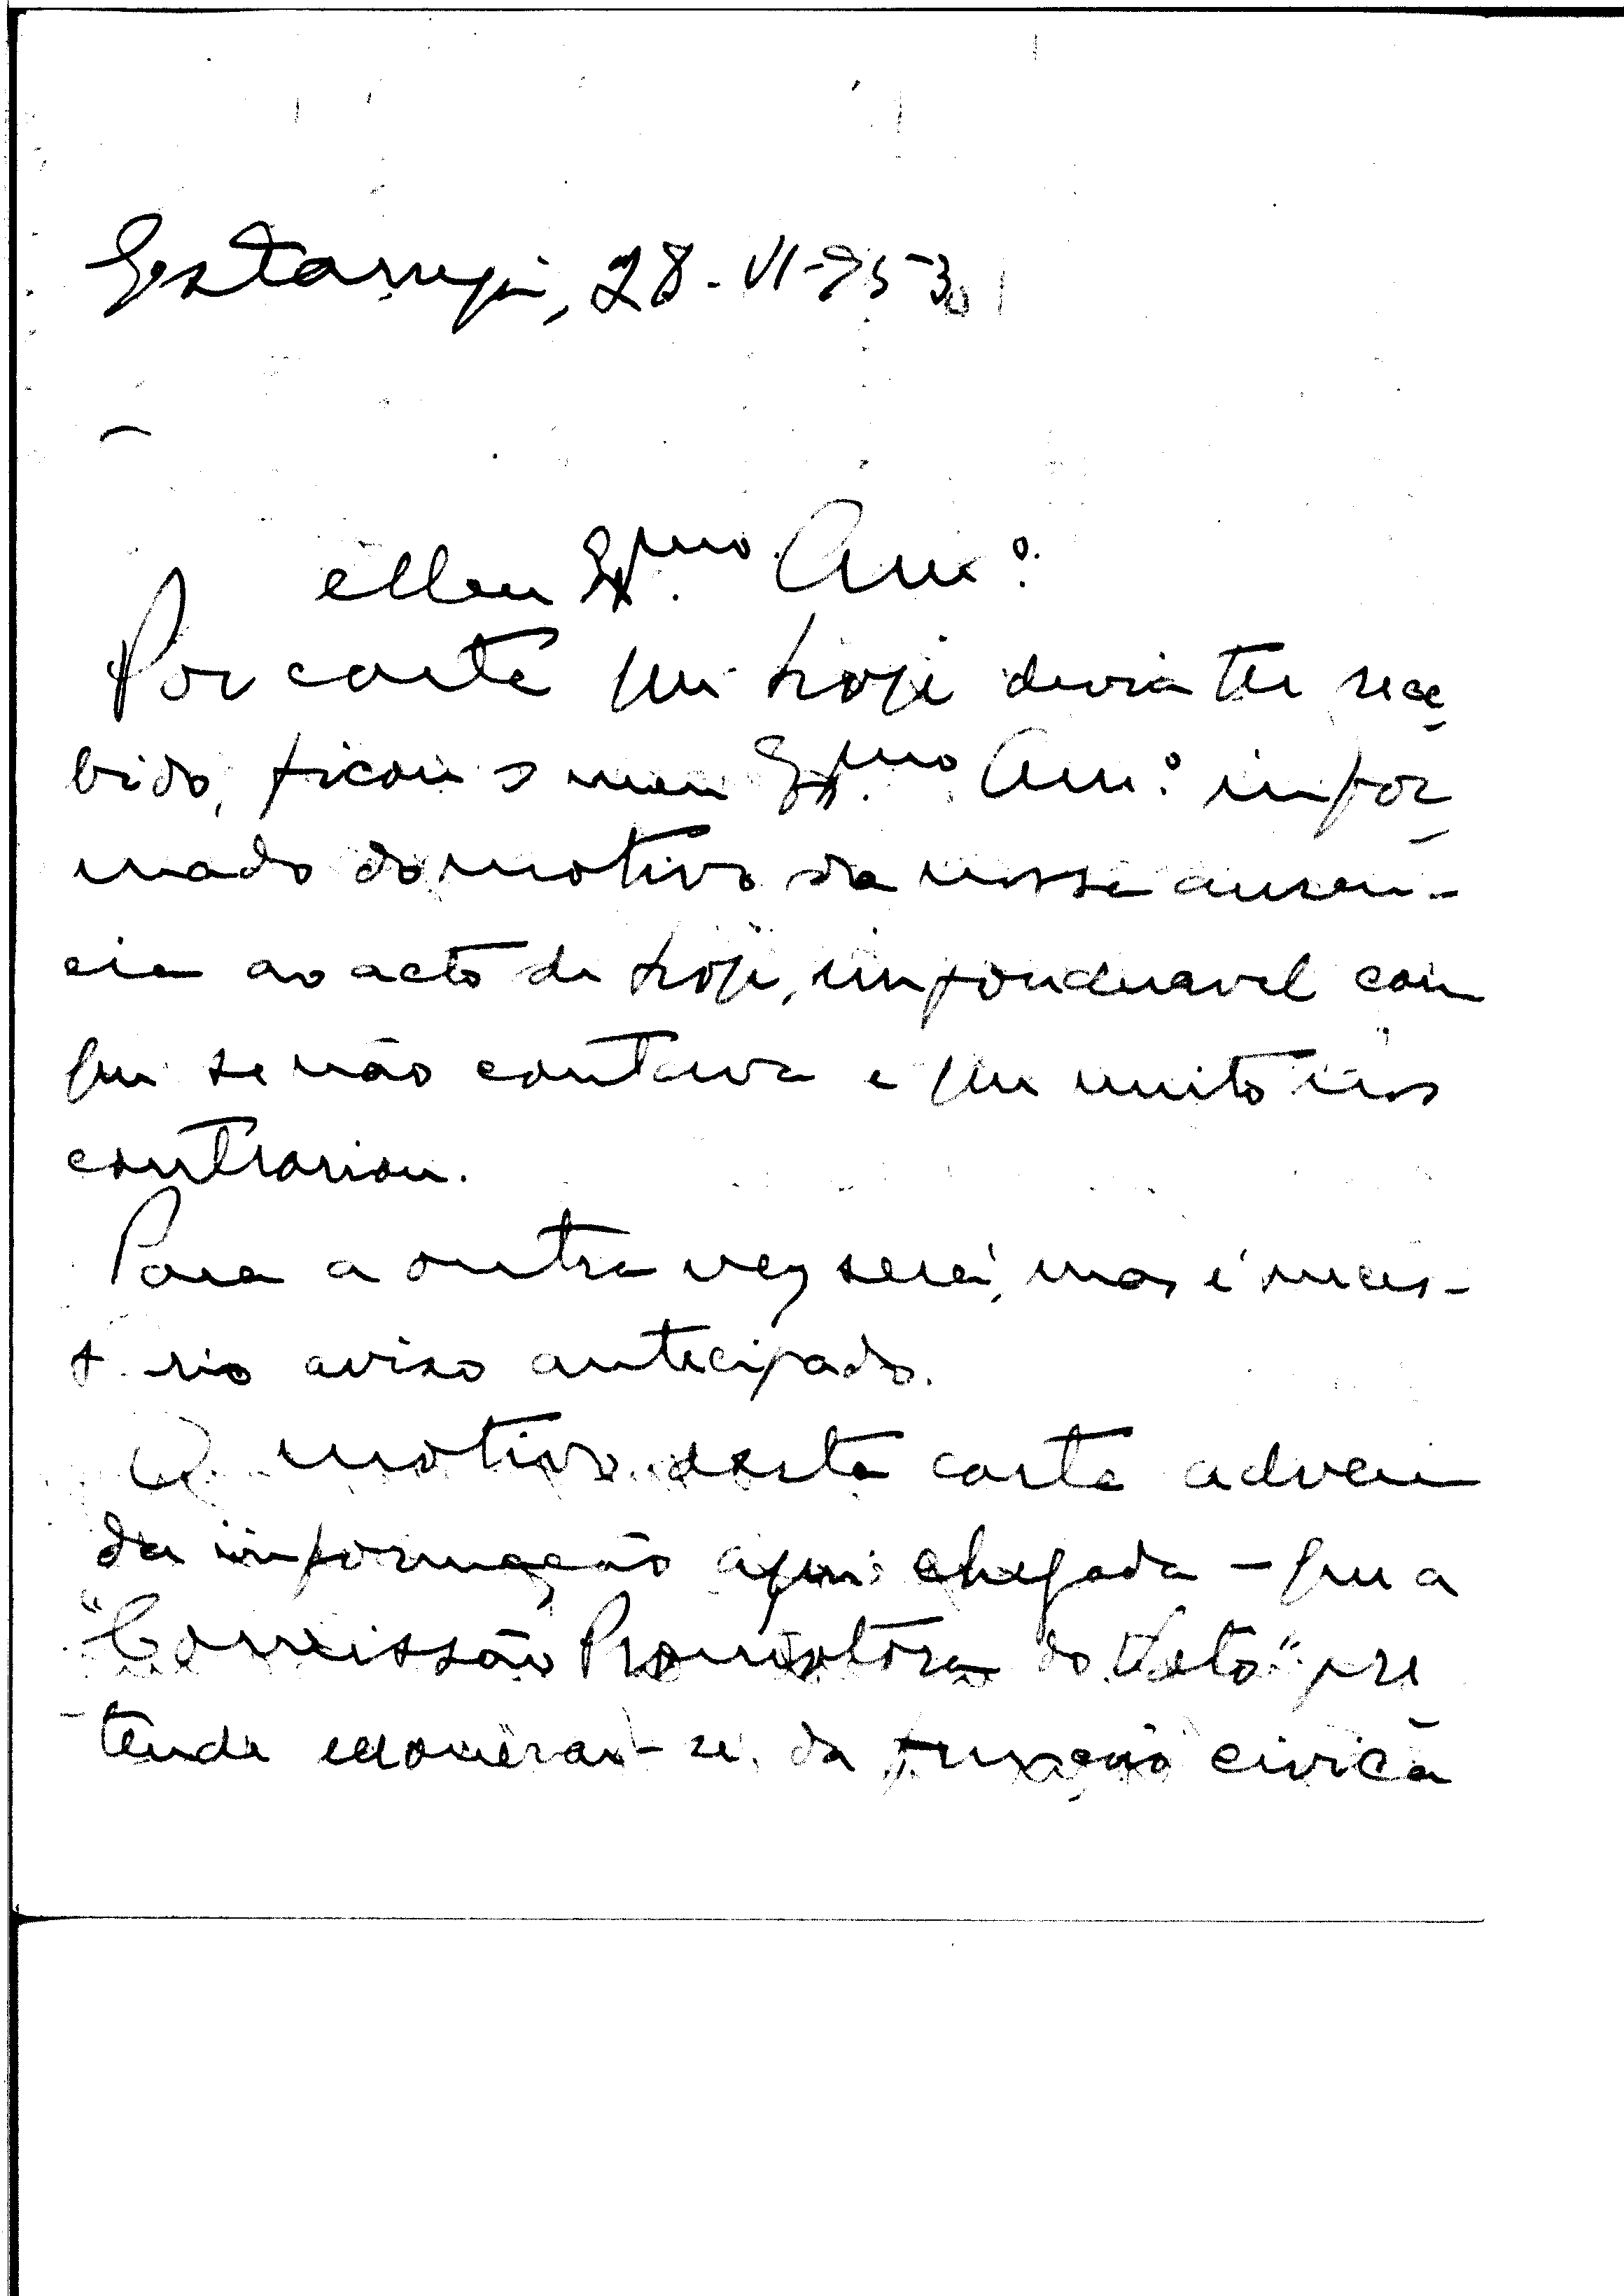 Estarreja, 28-VI-953
Meu Exmo. Amº.
Por carta que hoje devia ter rece-
bido, ficou o meu Exmo. Amº. infor-
mado do motivo da nossa ausen-
cia ao acto de hoje, imponderavel com
que se não contava e que muito nos
contrariou.
Para a outra vez será, mas é neces-
rio aviso antecipado.
O motivo desta carta advem
da informação aqui chegada – que a
"Comissão Promotora do" pre
tende exonerar-se da função civica